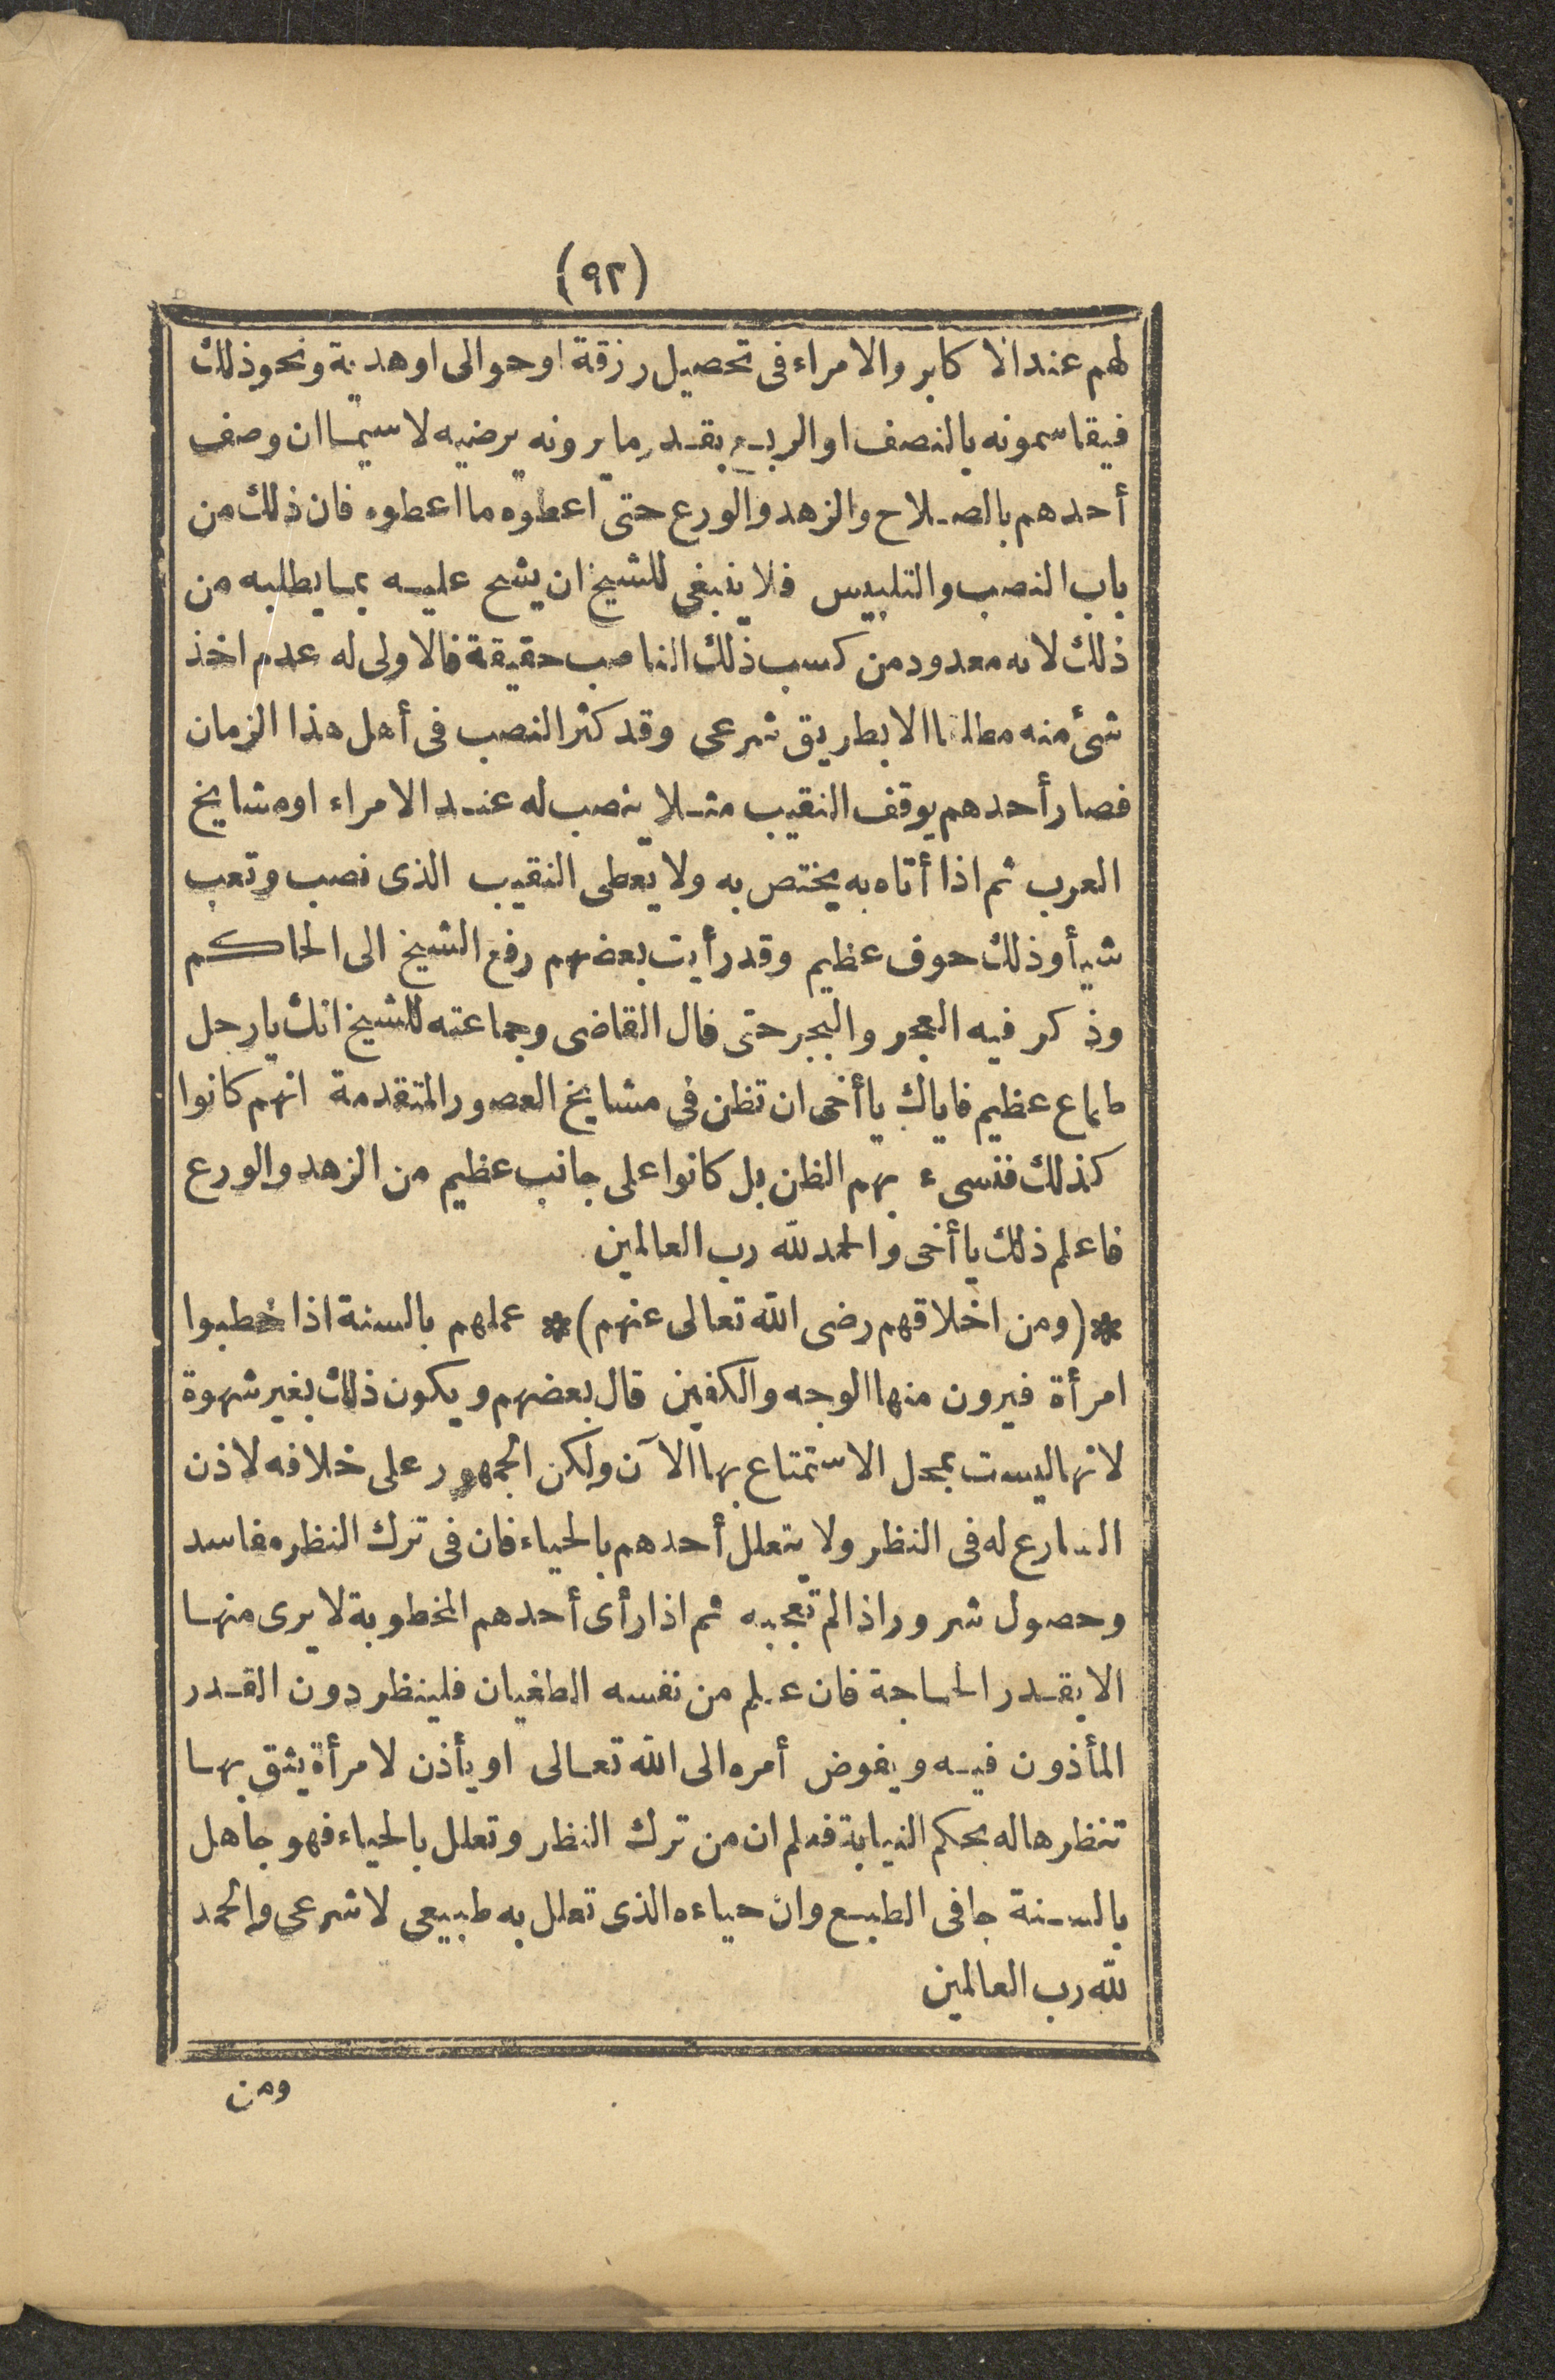 (٩٢)
لهم عند الاكابر والامراء فى تحصيل رزقة اوحوالى اوهدية ونحو ذلك
فيقاسمونه بالنصف او الربع بقدر ما يرونه يرضيه لاسيما ان وصف
أحدهم بالصلاح والزهد والورع حتى اعطوه ما اعطوه فان ذلك من
باب النصب والتلبيس فلا ينبغى للشيخ ان يشح عليه بما يطلبه من
ذلك لانه معدود من كسب ذلك الناصب حقيقة فالاولى له عدم اخذ
شئ منه مطلقا الا بطريق شرعى وقد كثر النصب فى أهل هذا الزمان
فصار أحدهم يوقف النقيب مثلا ينصب له عند الامراء اومشايخ
العرب ثم اذا أتاه به يختص به ولا يعطى النقيب الذى نصب وتعب
شيأ وذلك حوف عظيم وقد رأيت بعضهم رفع الشيخ الى الحاكم
وذكر فيه العجر والبجر حتى قال القاضى وجماعته للشيخ انك يا رجل
طماع عظيم فاياك يا أخى ان تظن فى مشايخ العصور المتقدمة انهم كانوا
كذلك فتسىء بهم الظن بل كانوا على جانب عظيم من الزهد والورع
فاعلم ذلك يا أخى والحمد لله رب العالمين
* (ومن اخلاقهم رضى الله تعالى عنهم) * عملهم بالسنة اذا خطبوا
امرأة فيرون منها الوجه والكفين قال بعضهم ويكون ذلك بغير شهوة
لانها ليست بمحل الاستمتاع بها الآن ولكن الجمهور على خلافه لاذن
الشارع له فى النظر ولا يتعلل أحدهم بالحياء فان فى ترك النظر مفاسد
وحصول شرور اذا لم تعجبه ثم اذا رأى أحدهم المخطوبة لا يرى منها
الا بقدر الحاجة فان علم من نفسه الطغيان فلينظر دون القدر
المأذون فيه ويفوض أمره الى الله تعالى او يأذن لامرأة يثق بها
تنظرها له بحكم النيابة فعلم ان من ترك النظر وتعلل بالحياء فهو جاهل
بالسنة جافى الطبع وان حياءه الذى تعلل به طبيعى لا شرعى والحمد
لله رب العالمين
ومن